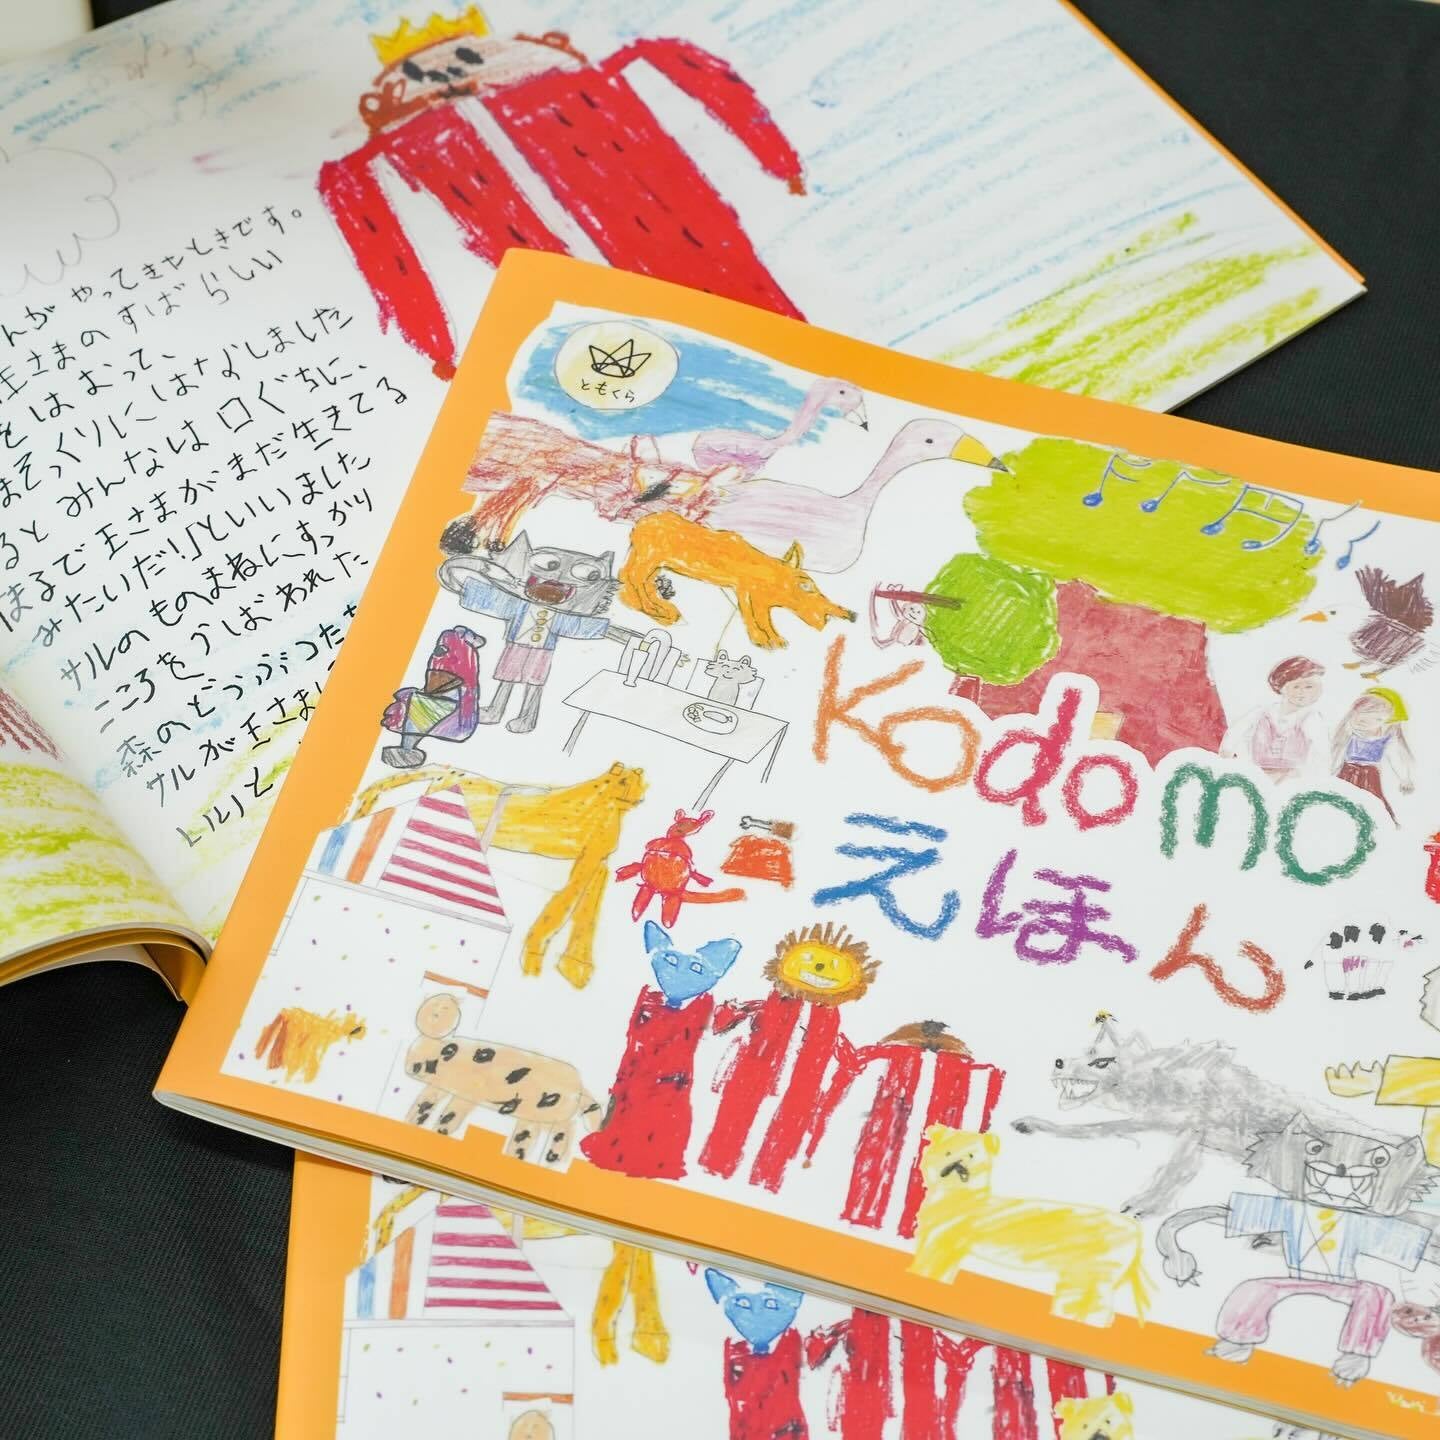 んが やってきたときです。
王さまの すばらしい
をはおって、
まそっくりにはなしました
ると みんなは 口ぐちに、
まるで王さまがまだ生きてる
みたいだ!」といいました
サルのものまねにすっかり
こころをうばわれた
森のどうぶつたち
サルが王さま
いいと
ともくら
Kodomo
えほん